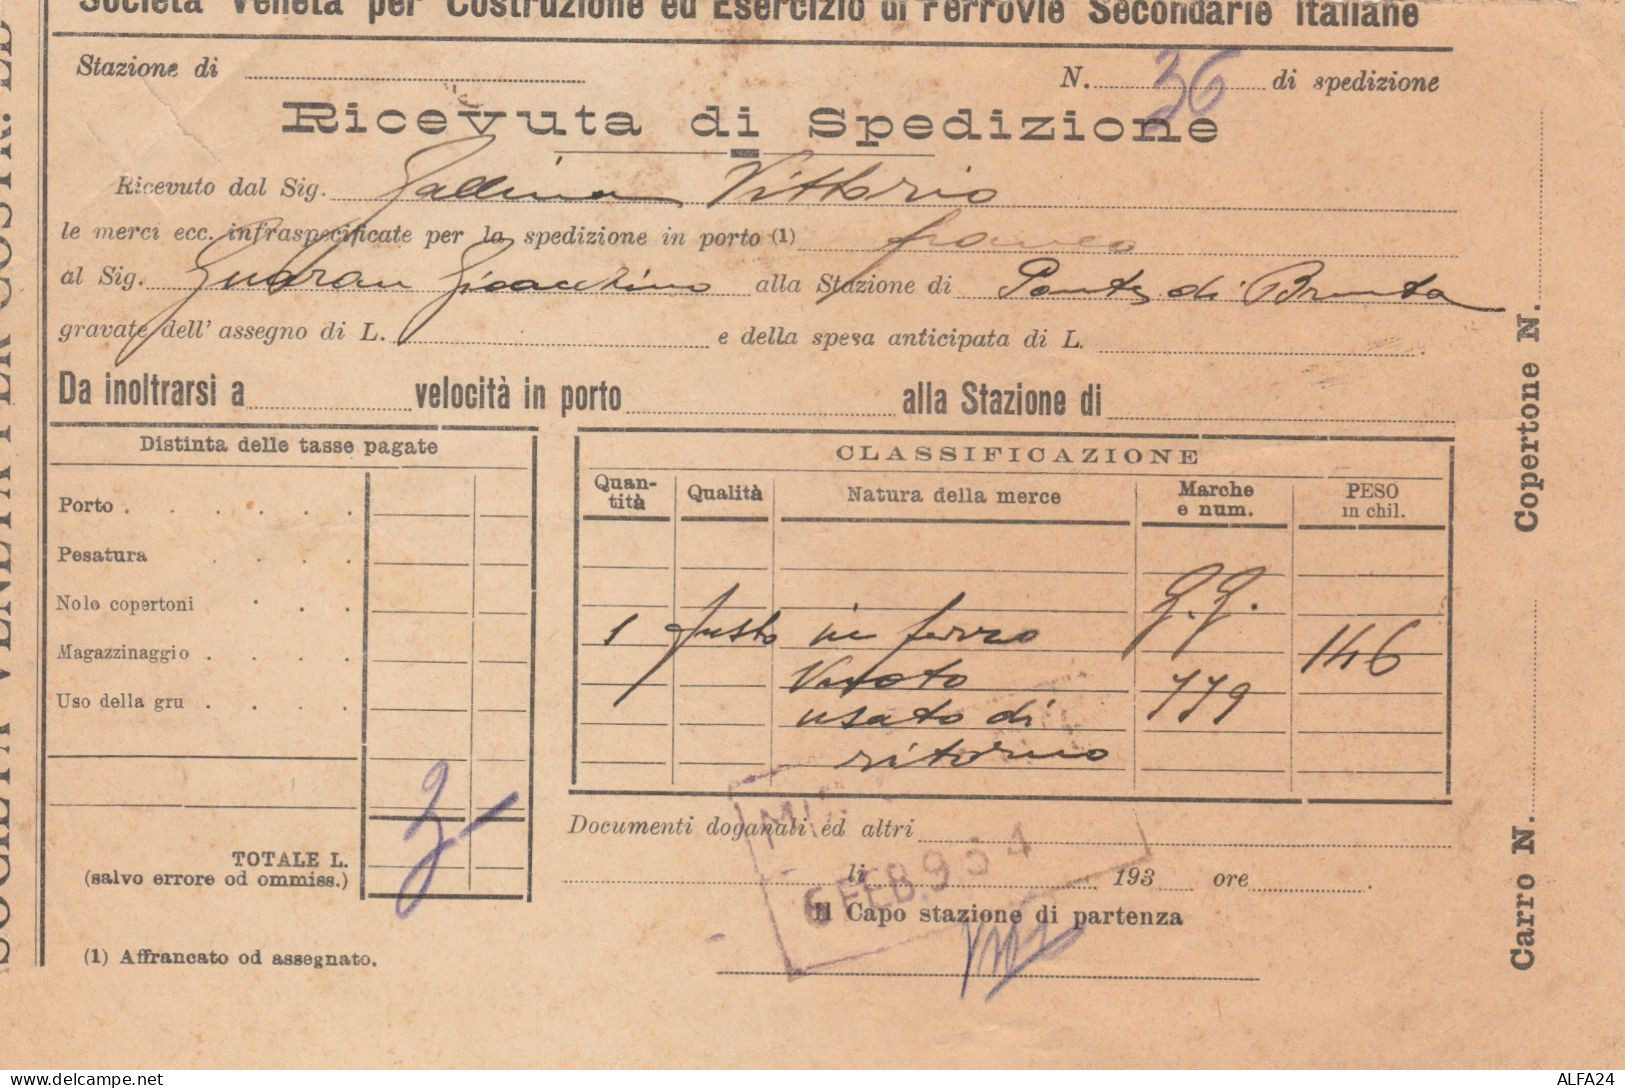 Società Veneta per Costruzione ed Esercizio di Ferrovie Secondarie Italiane
Stazione di
N. 36 di spedizione
Ricevuta di Spedizione
Ricevuto dal Sig. Gallina Vittorio
le merci ecc. infraspecificate per la spedizione in porto (1) franco
al Sig. Gioacchino alla Stazione di Ponte di Brenta
gravate dell' assegno di L. e della spesa anticipata di L.
Da inoltrarsi a velocità in porto alla Stazione di
Distinta delle tasse pagate
Porto
Pesatura
Nolo copertoni
Magazzinaggio
Uso della gru
3-
TOTALE L.
(salvo errore od ommiss.)
(1) Affrancato od assegnato.
CLASSIFICAZIONE
Quan-tità Qualità Natura della merce Marche e num. PESO in chil.
G. G.
1 fusto in ferro 146
Vuoto 779
usato di
ritorno
Documenti doganali ed altri
li 193 ore
6 FEB. 934
Il Capo stazione di partenza
Copertone N.
Carro N.
SOCIETÀ VENETA PER COSTR. ED
delcampe.net
ALFA24